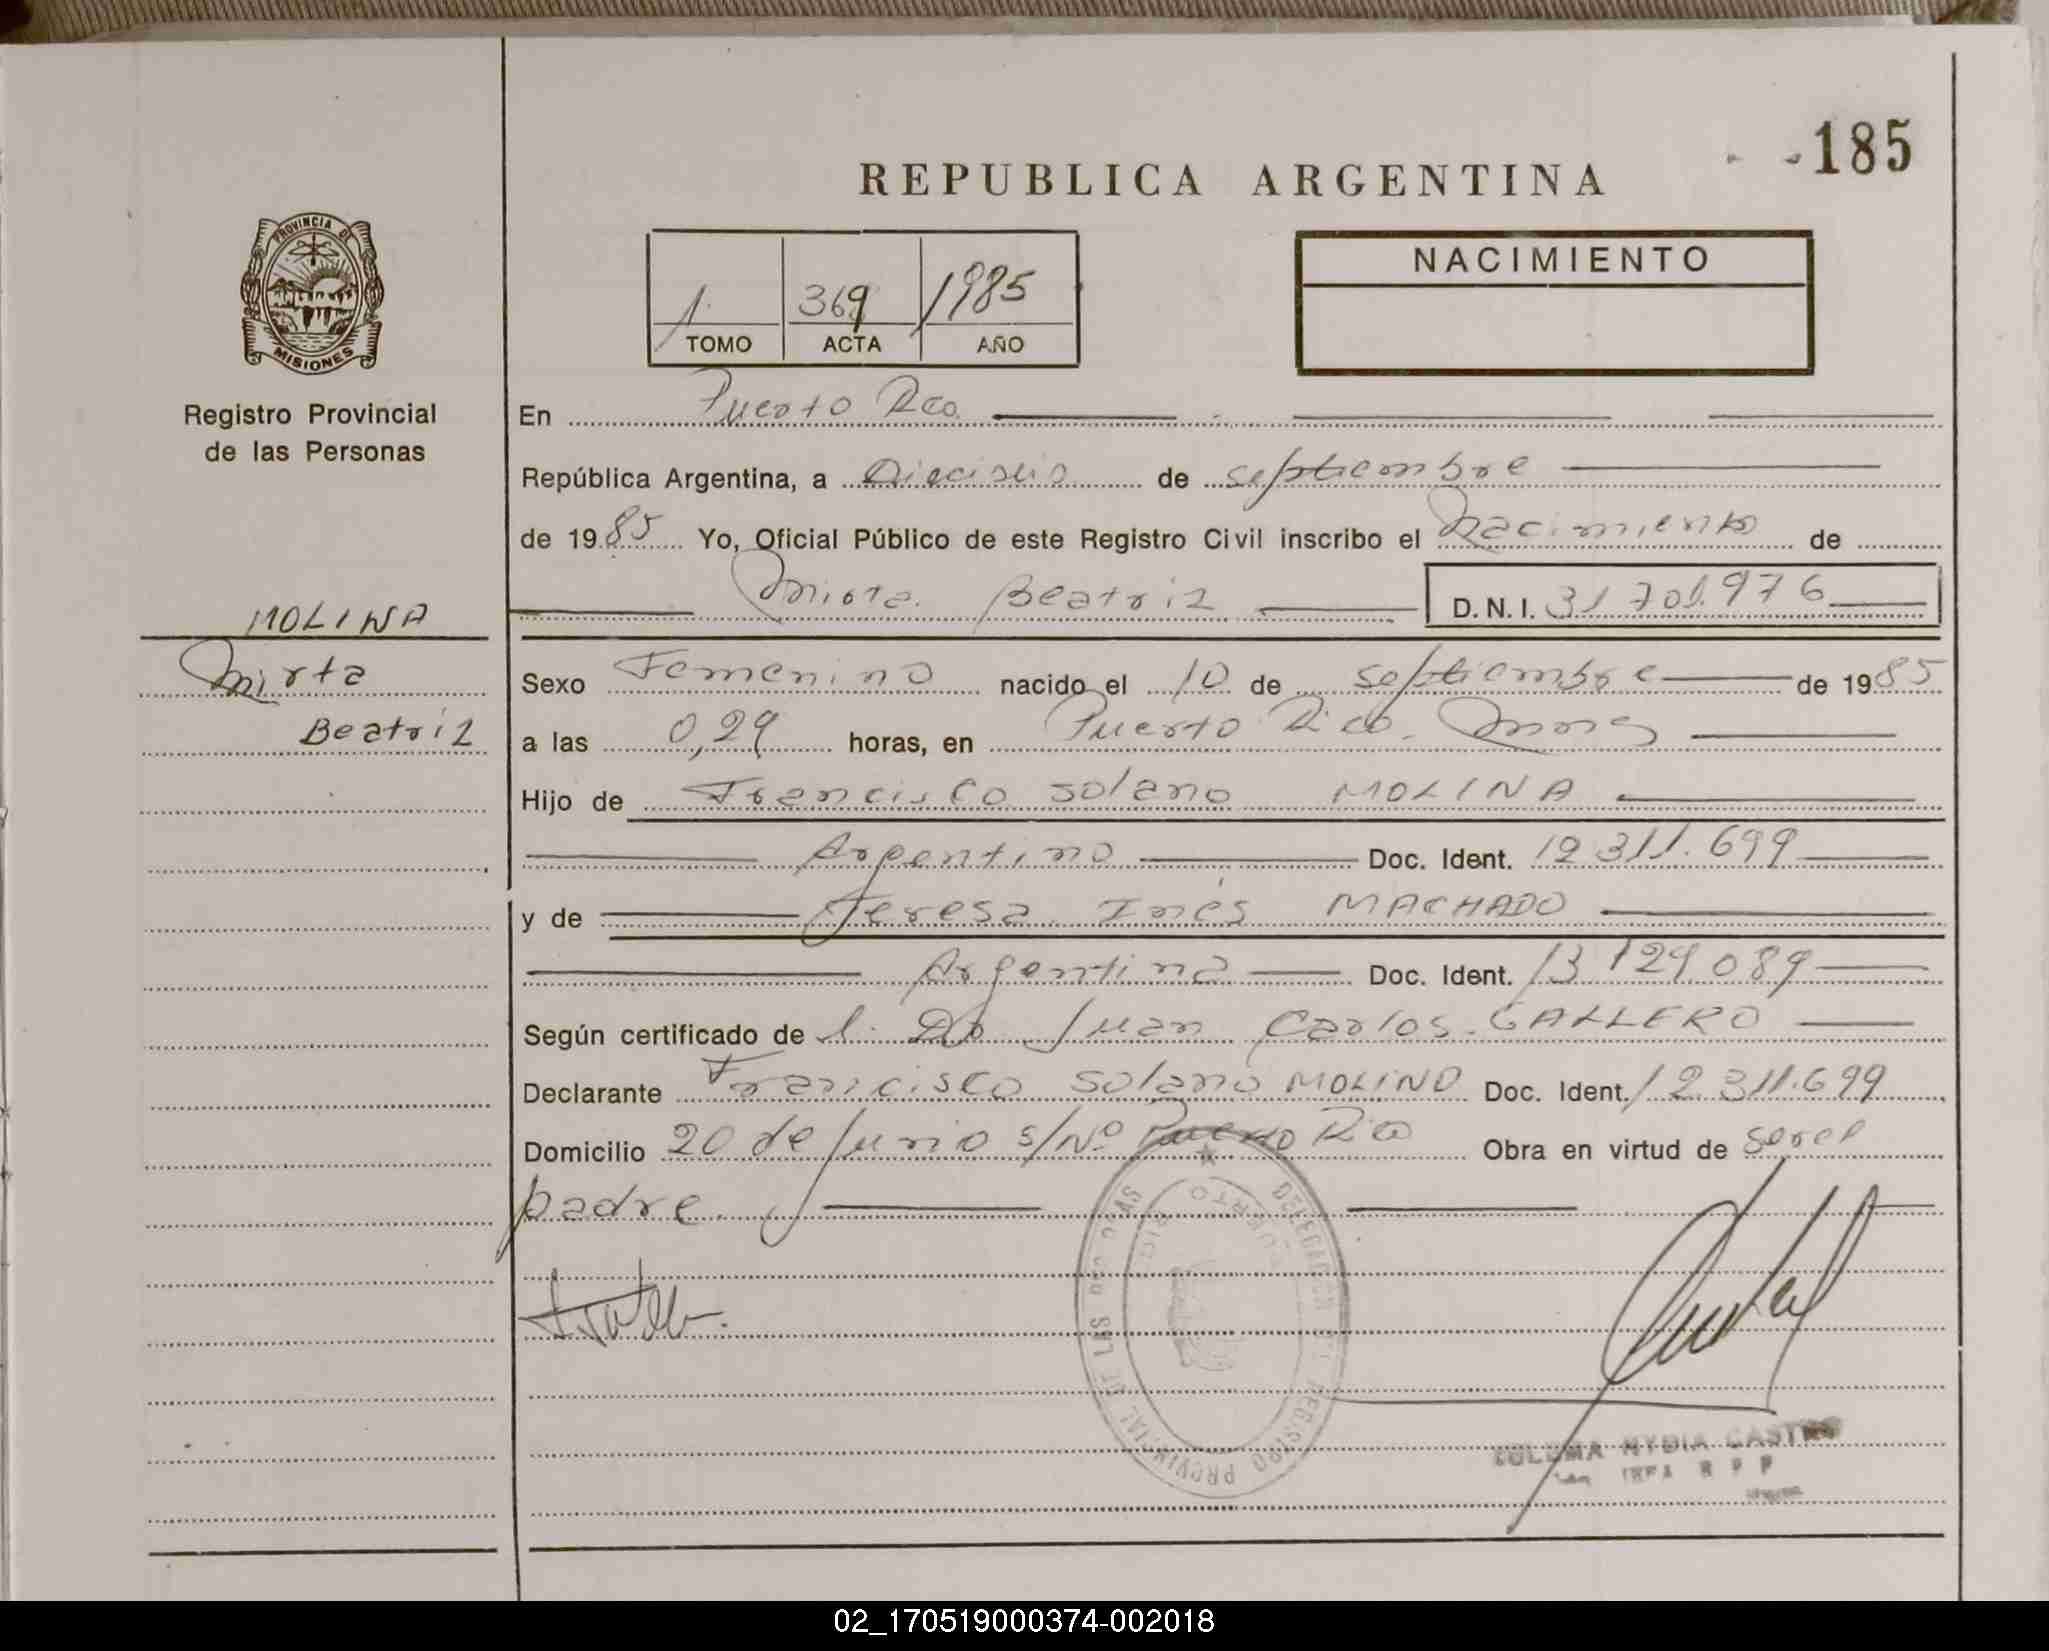 185
REPUBLICA ARGENTINA
PROVINCIA DE
MISIONES
Registro Provincial
de las Personas
MOLINA
Mirta
Beatriz
1. 369 1985
TOMO ACTA AÑO
NACIMIENTO
En Puerto Rico
República Argentina, a Dieciséis de septiembre
de 1985 Yo, Oficial Público de este Registro Civil inscribo el Nacimiento de
Mirta Beatriz D.N.I. 31.701.976
Sexo Femenino nacido el 10 de septiembre de 1985
a las 0,29 horas, en Puerto Rico. Mnes
Hijo de Francisco Solano MOLINA
Argentino Doc. Ident. 12.311.699
y de Teresa Inés MACHADO
Argentina Doc. Ident. 13.129.089
Según certificado de l. Dr Juan Carlos GALLERO
Declarante Francisco Solano MOLINO Doc. Ident. 12.311.699
Domicilio 20 de Junio s/Nº Puerto Rico Obra en virtud de ser el
padre.
DELEGACION DEL REGISTRO PROVINCIAL DE LAS PERSONAS
PUERTO RICO
NYDIA CASTRO
02_170519000374-002018